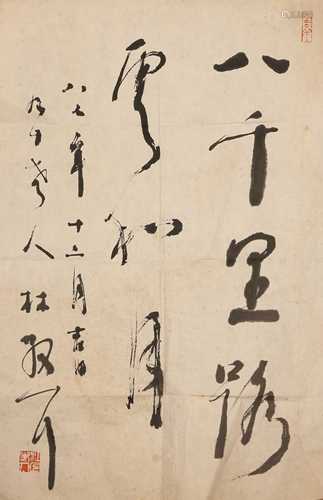 八千里路
雲和月
八七年十二月吉日
九十老人林散耳